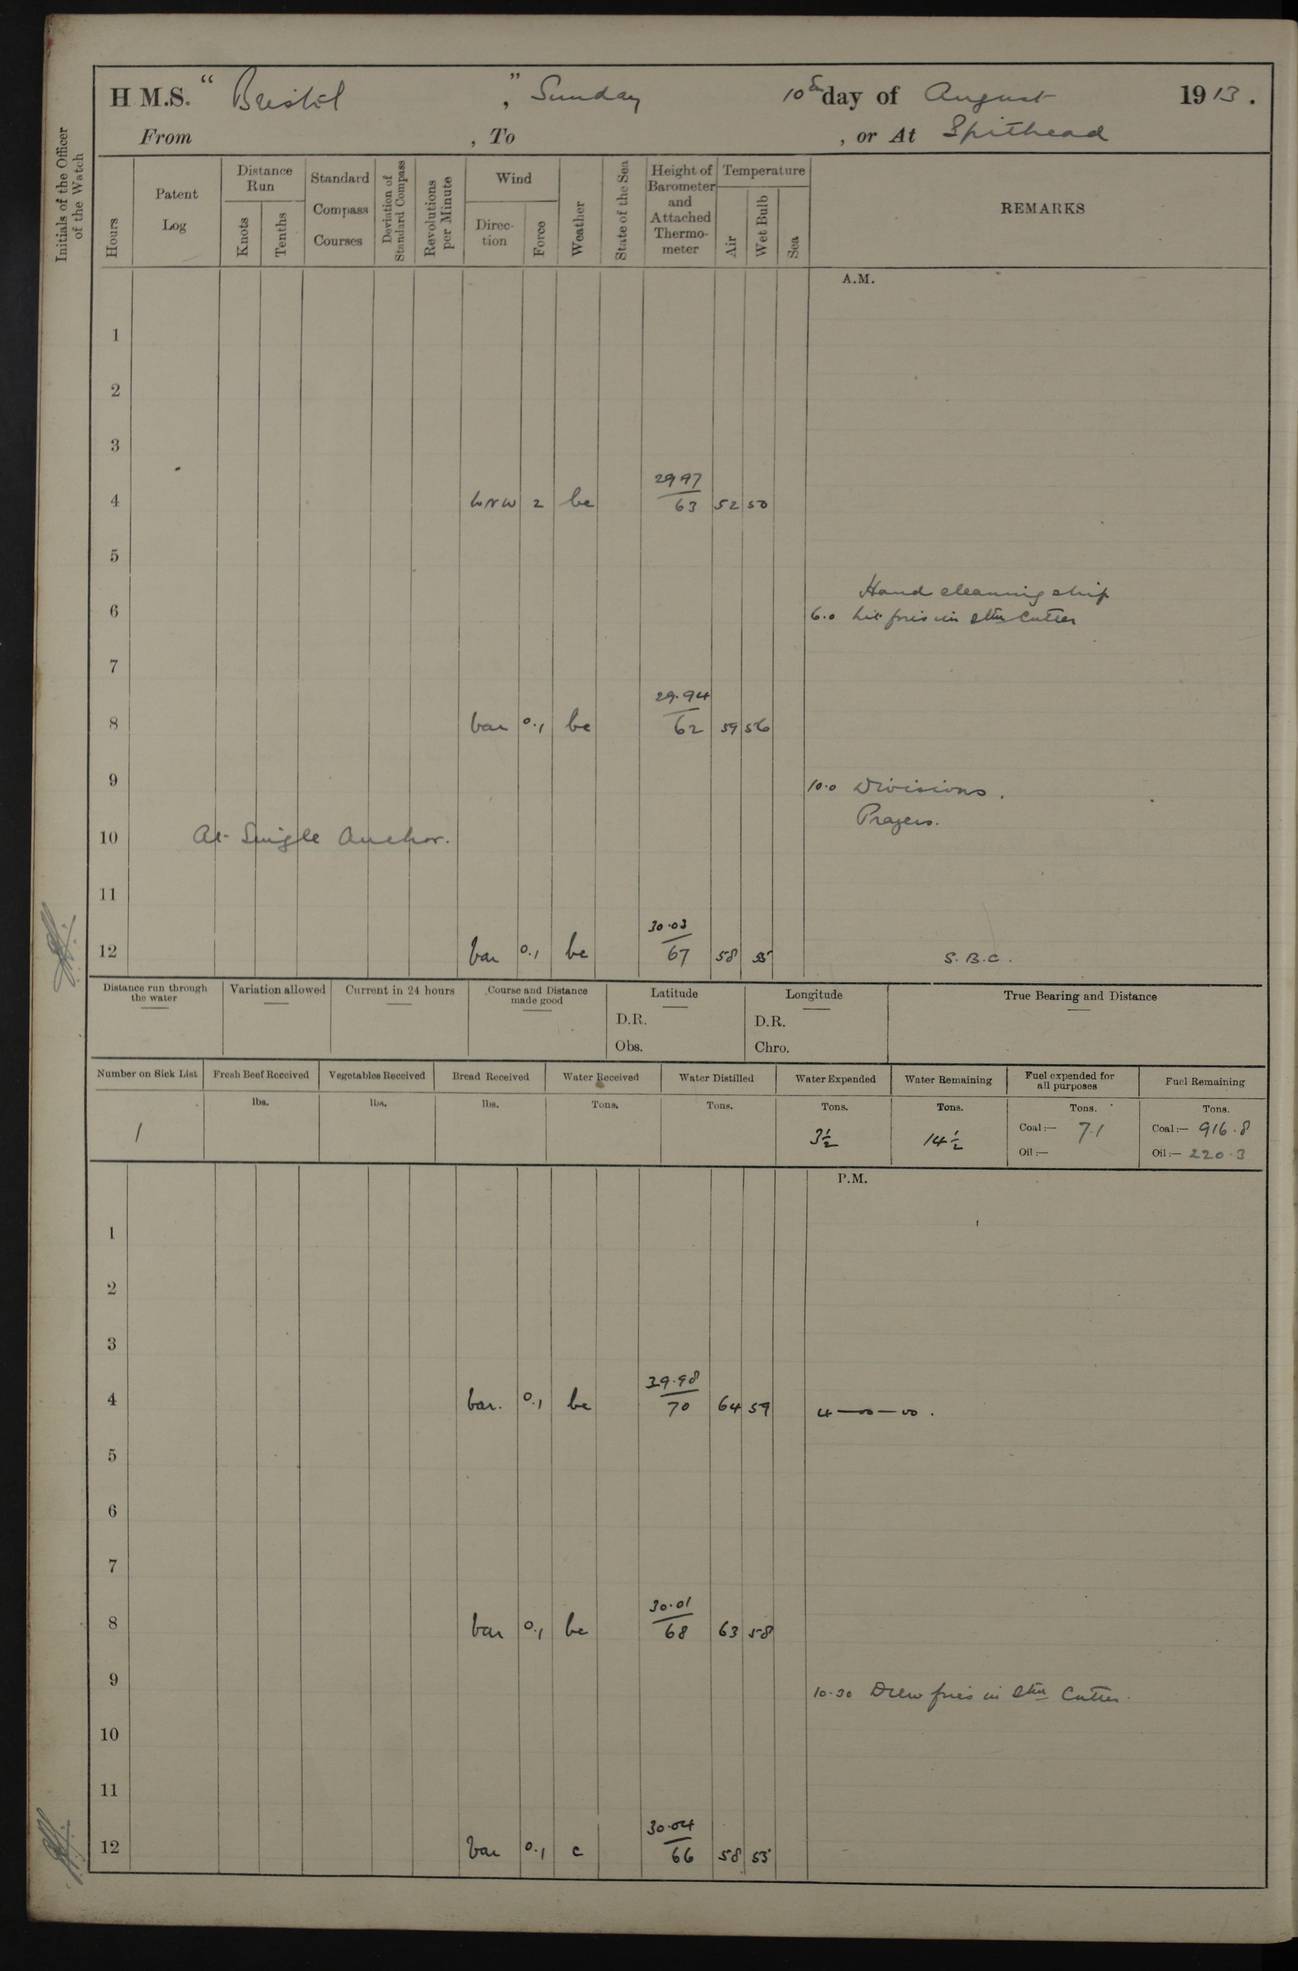 H M.S. " Bristol ", Sunday 10th day of August 1913.
From , To , or At Spithead
Initials of the Officer of the Watch
Hours
Patent Log
Distance Run
Knots
Tenths
Standard Compass Courses
Deviation of Standard Compass
Revolutions per Minute
Wind
Direction
Force
Weather
State of the Sea
Height of Barometer and Attached Thermometer
Temperature
Air
Wet Bulb
Sea
REMARKS
A.M.
1
2
3
4 WNW 2 bc 29.97/63 52 50
5
Hands cleaning ship
6 6.0 Lit fires in Stm Cutter
7
8 var 0.1 bc 29.94/62 59 56
9 10.0 Divisions.
Prayers.
10 At Single Anchor.
11
12 var 0.1 bc 30.03/67 58 55 S.B.C.
Distance run through the water
Variation allowed
Current in 24 hours
Course and Distance made good
Latitude
D.R.
Obs.
Longitude
D.R.
Chro.
True Bearing and Distance
Number on Sick List
Fresh Beef Received
Vegetables Received
Bread Received
Water Received
Water Distilled
Water Expended
Water Remaining
Fuel expended for all purposes
Fuel Remaining
lbs. lbs. lbs. Tons. Tons. Tons. Tons. Tons. Tons.
1 3½ 14½ Coal:— 7.1 Coal:— 916.8
Oil:— Oil:— 220.3
P.M.
1
2
3
4 var. 0.1 bc 29.98/70 64 59
5
6
7
8 var 0.1 bc 30.01/68 63 58
9 10.30 Drew fires in Stm Cutter.
10
11
12 var 0.1 c 30.04/66 58 55